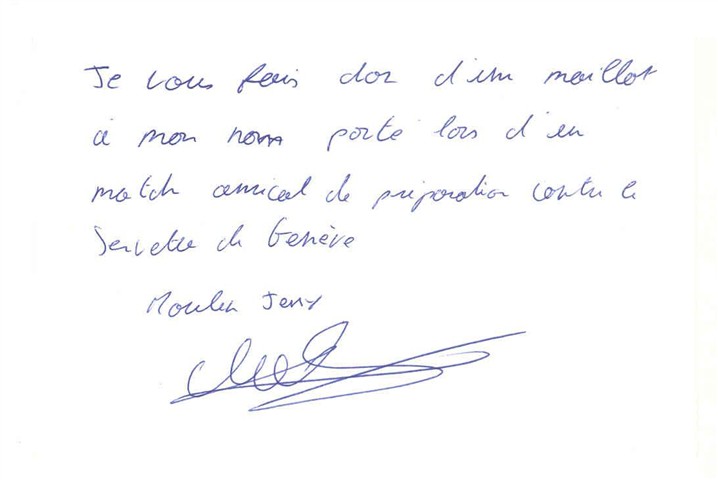 Je vous fais don d'un maillot
à mon nom porté lors d'un
match amical de préparation contre le
Servette de Genève
Moulin Jessy